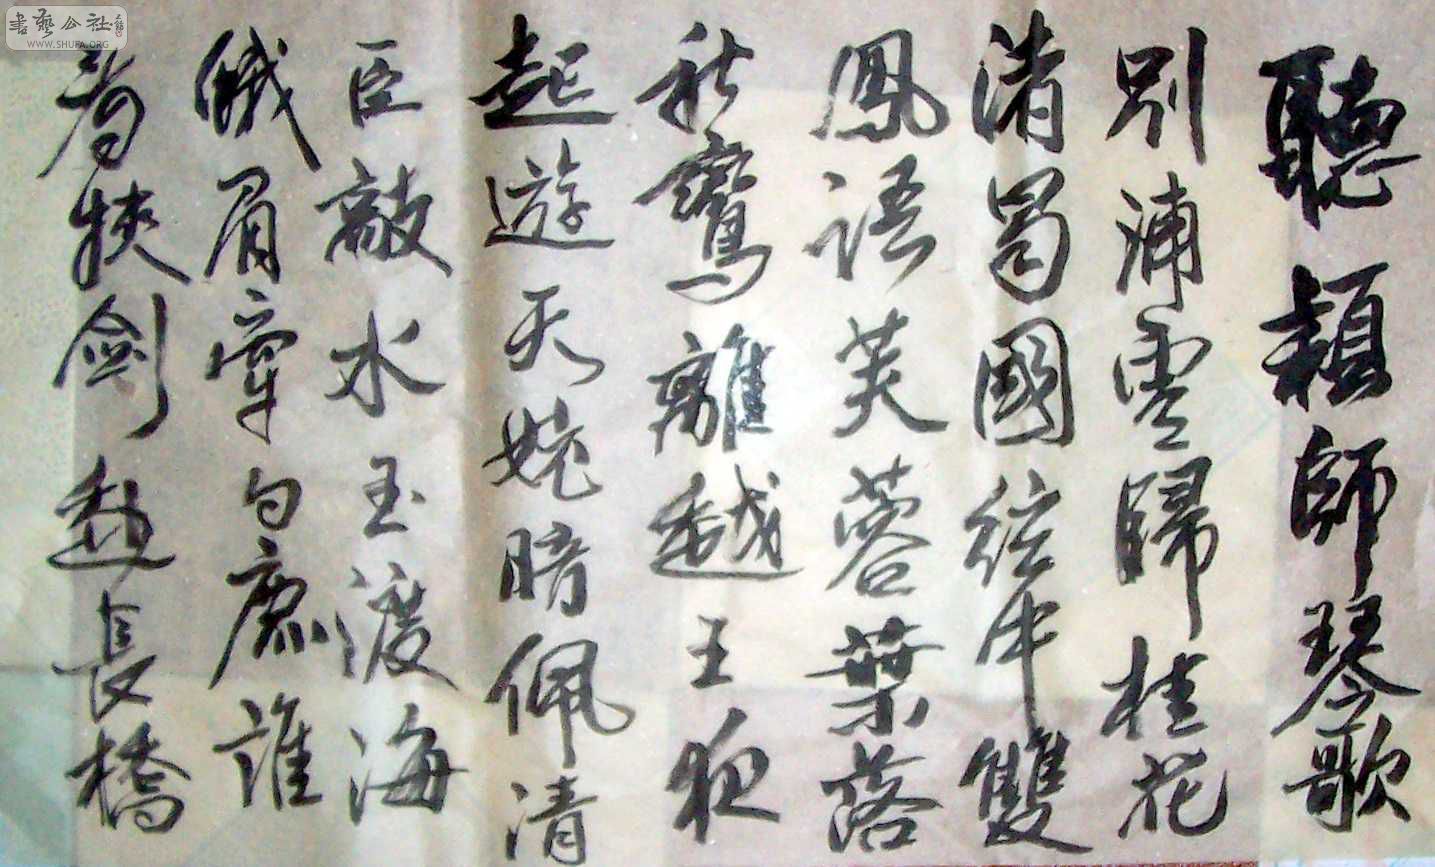 聽穎師琴歌
別浦雲歸桂花
渚蜀國絃中雙
鳳語芙蓉葉落
秋鸞離越王夜
起遊天姥暗佩清
臣敲水玉渡海
蛾眉牽白鹿誰
看挾劍赴長橋
書藝公社
WWW.SHUFA.ORG